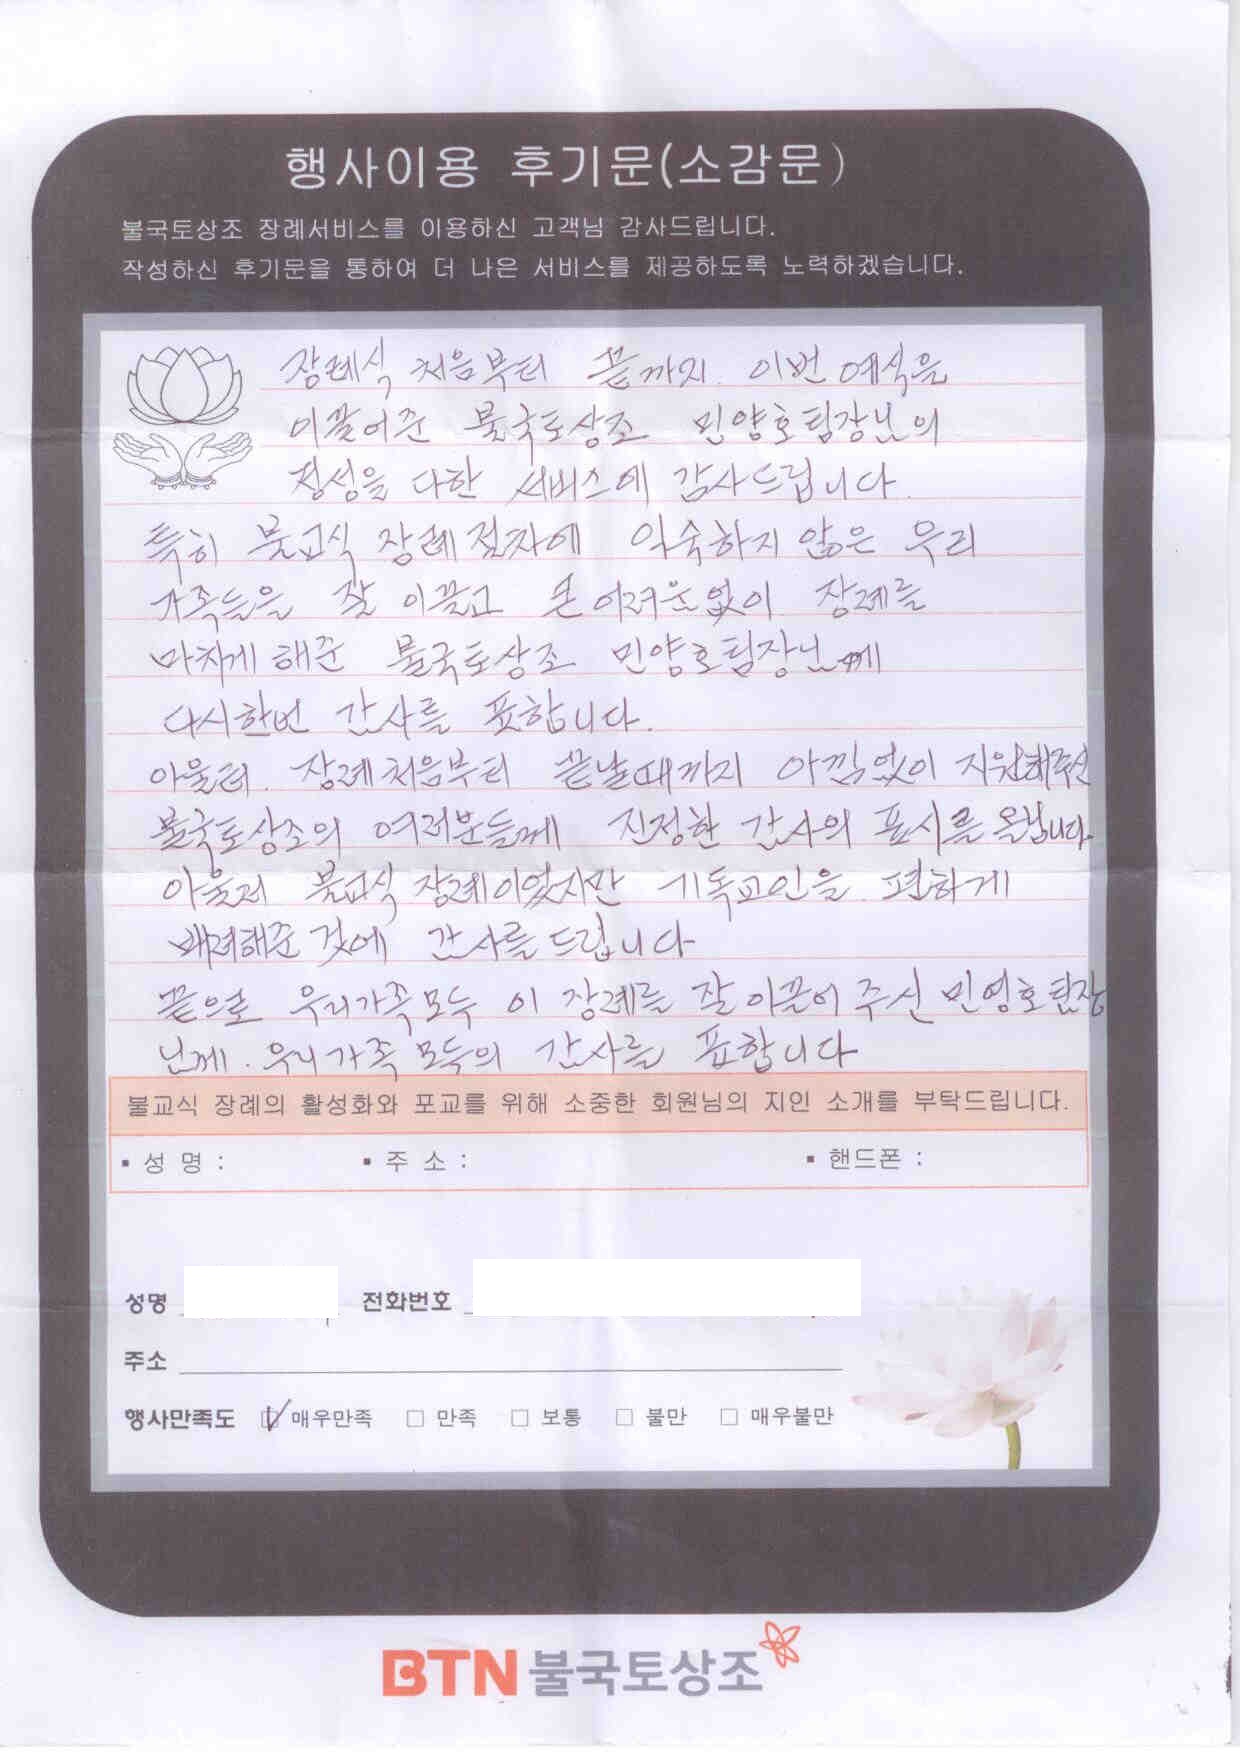 행사이용 후기문(소감문)
불국토상조 장례서비스를 이용하신 고객님 감사드립니다.
작성하신 후기문을 통하여 더 나은 서비스를 제공하도록 노력하겠습니다.
장례식 처음부터 끝까지. 이번 예식을
이끌어준 불국토상조 민양호팀장님의
정성을 다한 서비스에 감사드립니다.
특히 불교식 장례절차에 익숙하지 않은 우리
가족들을 잘 이끌고 큰 어려움없이 장례를
마치게 해준 불국토상조 민양호팀장님께
다시한번 감사를 표합니다.
아울러. 장례처음부터 끝날때까지 아낌없이 지원해주신
불국토상조의 여러분들께 진정한 감사의 표시를 올립니다.
아울러 불교식 장례이었지만 기독교인을 편하게
배려해준 것에 감사를 드립니다
끝으로 우리가족모두 이 장례를 잘 이끌어 주신 민영호팀장
님께. 우리가족 모두의 감사를 표합니다
불교식 장례의 활성화와 포교를 위해 소중한 회원님의 지인 소개를 부탁드립니다.
▪ 성 명 : ▪ 주 소 : ▪ 핸드폰 :
성명 전화번호
주소
행사만족도 ☑ 매우만족 □ 만족 □ 보통 □ 불만 □ 매우불만
BTN 불국토상조